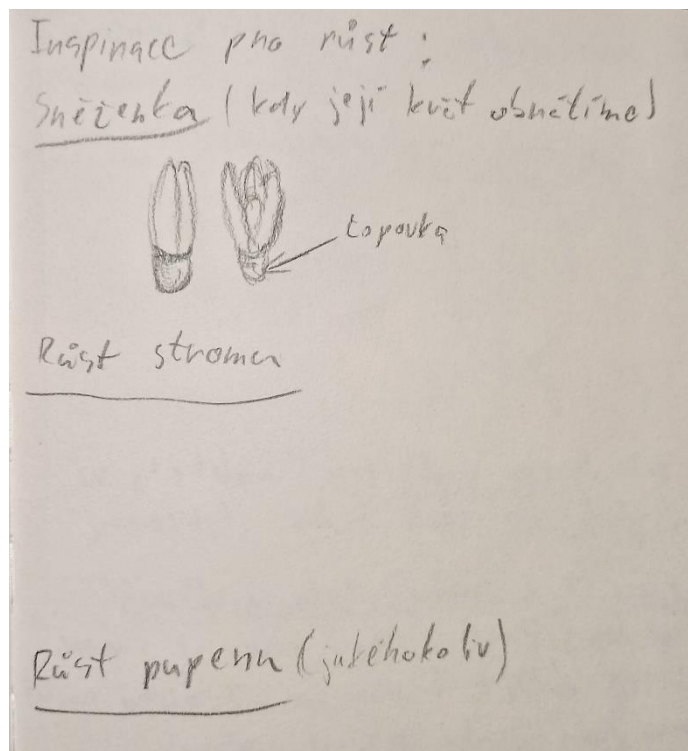 Inspirace pro růst :
Sněženka (kdy její květ obrátíme)
topovka
Růst stromu
Růst pupenu (jakéhokoliv)